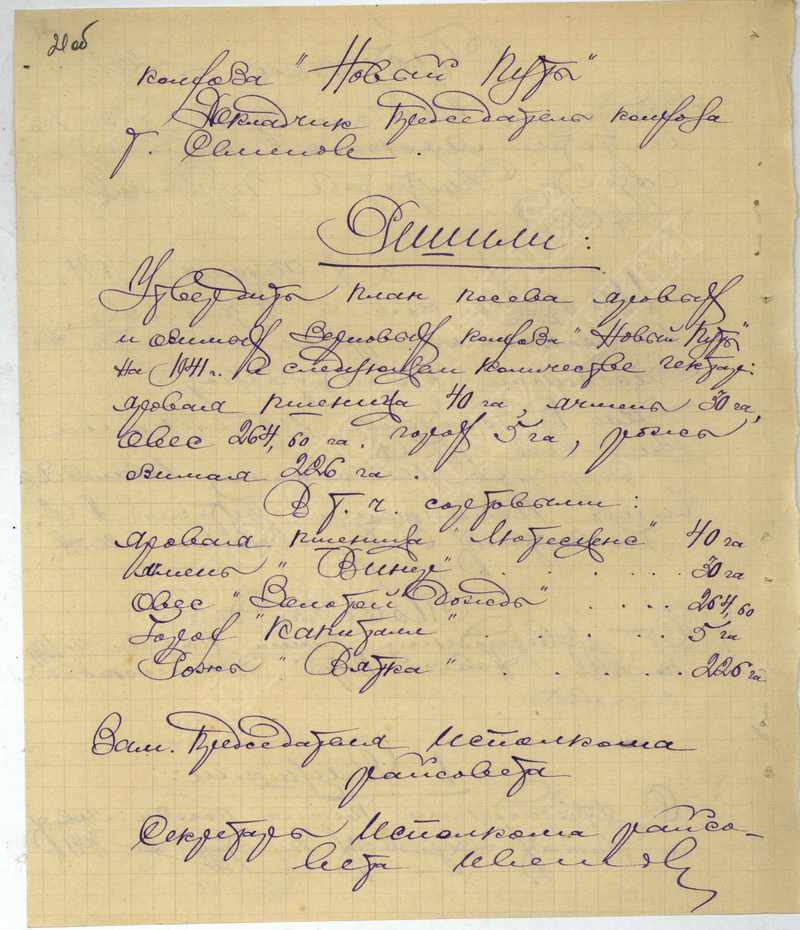 21 об
колхоза "Новый Путь"
Докладчик Председатель колхоза
т. Семенов.
Решили:
Утвердить план посева яровых
и озимых зерновых колхоза "Новый Путь"
на 1941 г. в следующем количестве гектар:
яровая пшеница 40 га, ячмень 30 га,
овес 264,60 га. горох 5 га, рожь
озимая 226 га.
В т. ч. сортовыми:
яровая пшеница "Лютесценс" 40 га
ячмень "Винер" . . . . . 30 га
Овес "Золотой Дождь" . . . . 264,60
Горох "Капитал" . . . . . 5 га
Рожь "Вятка" . . . . . . 226 га
Зам. Председателя Исполкома
райсовета
Секретарь Исполкома райсо-
вета